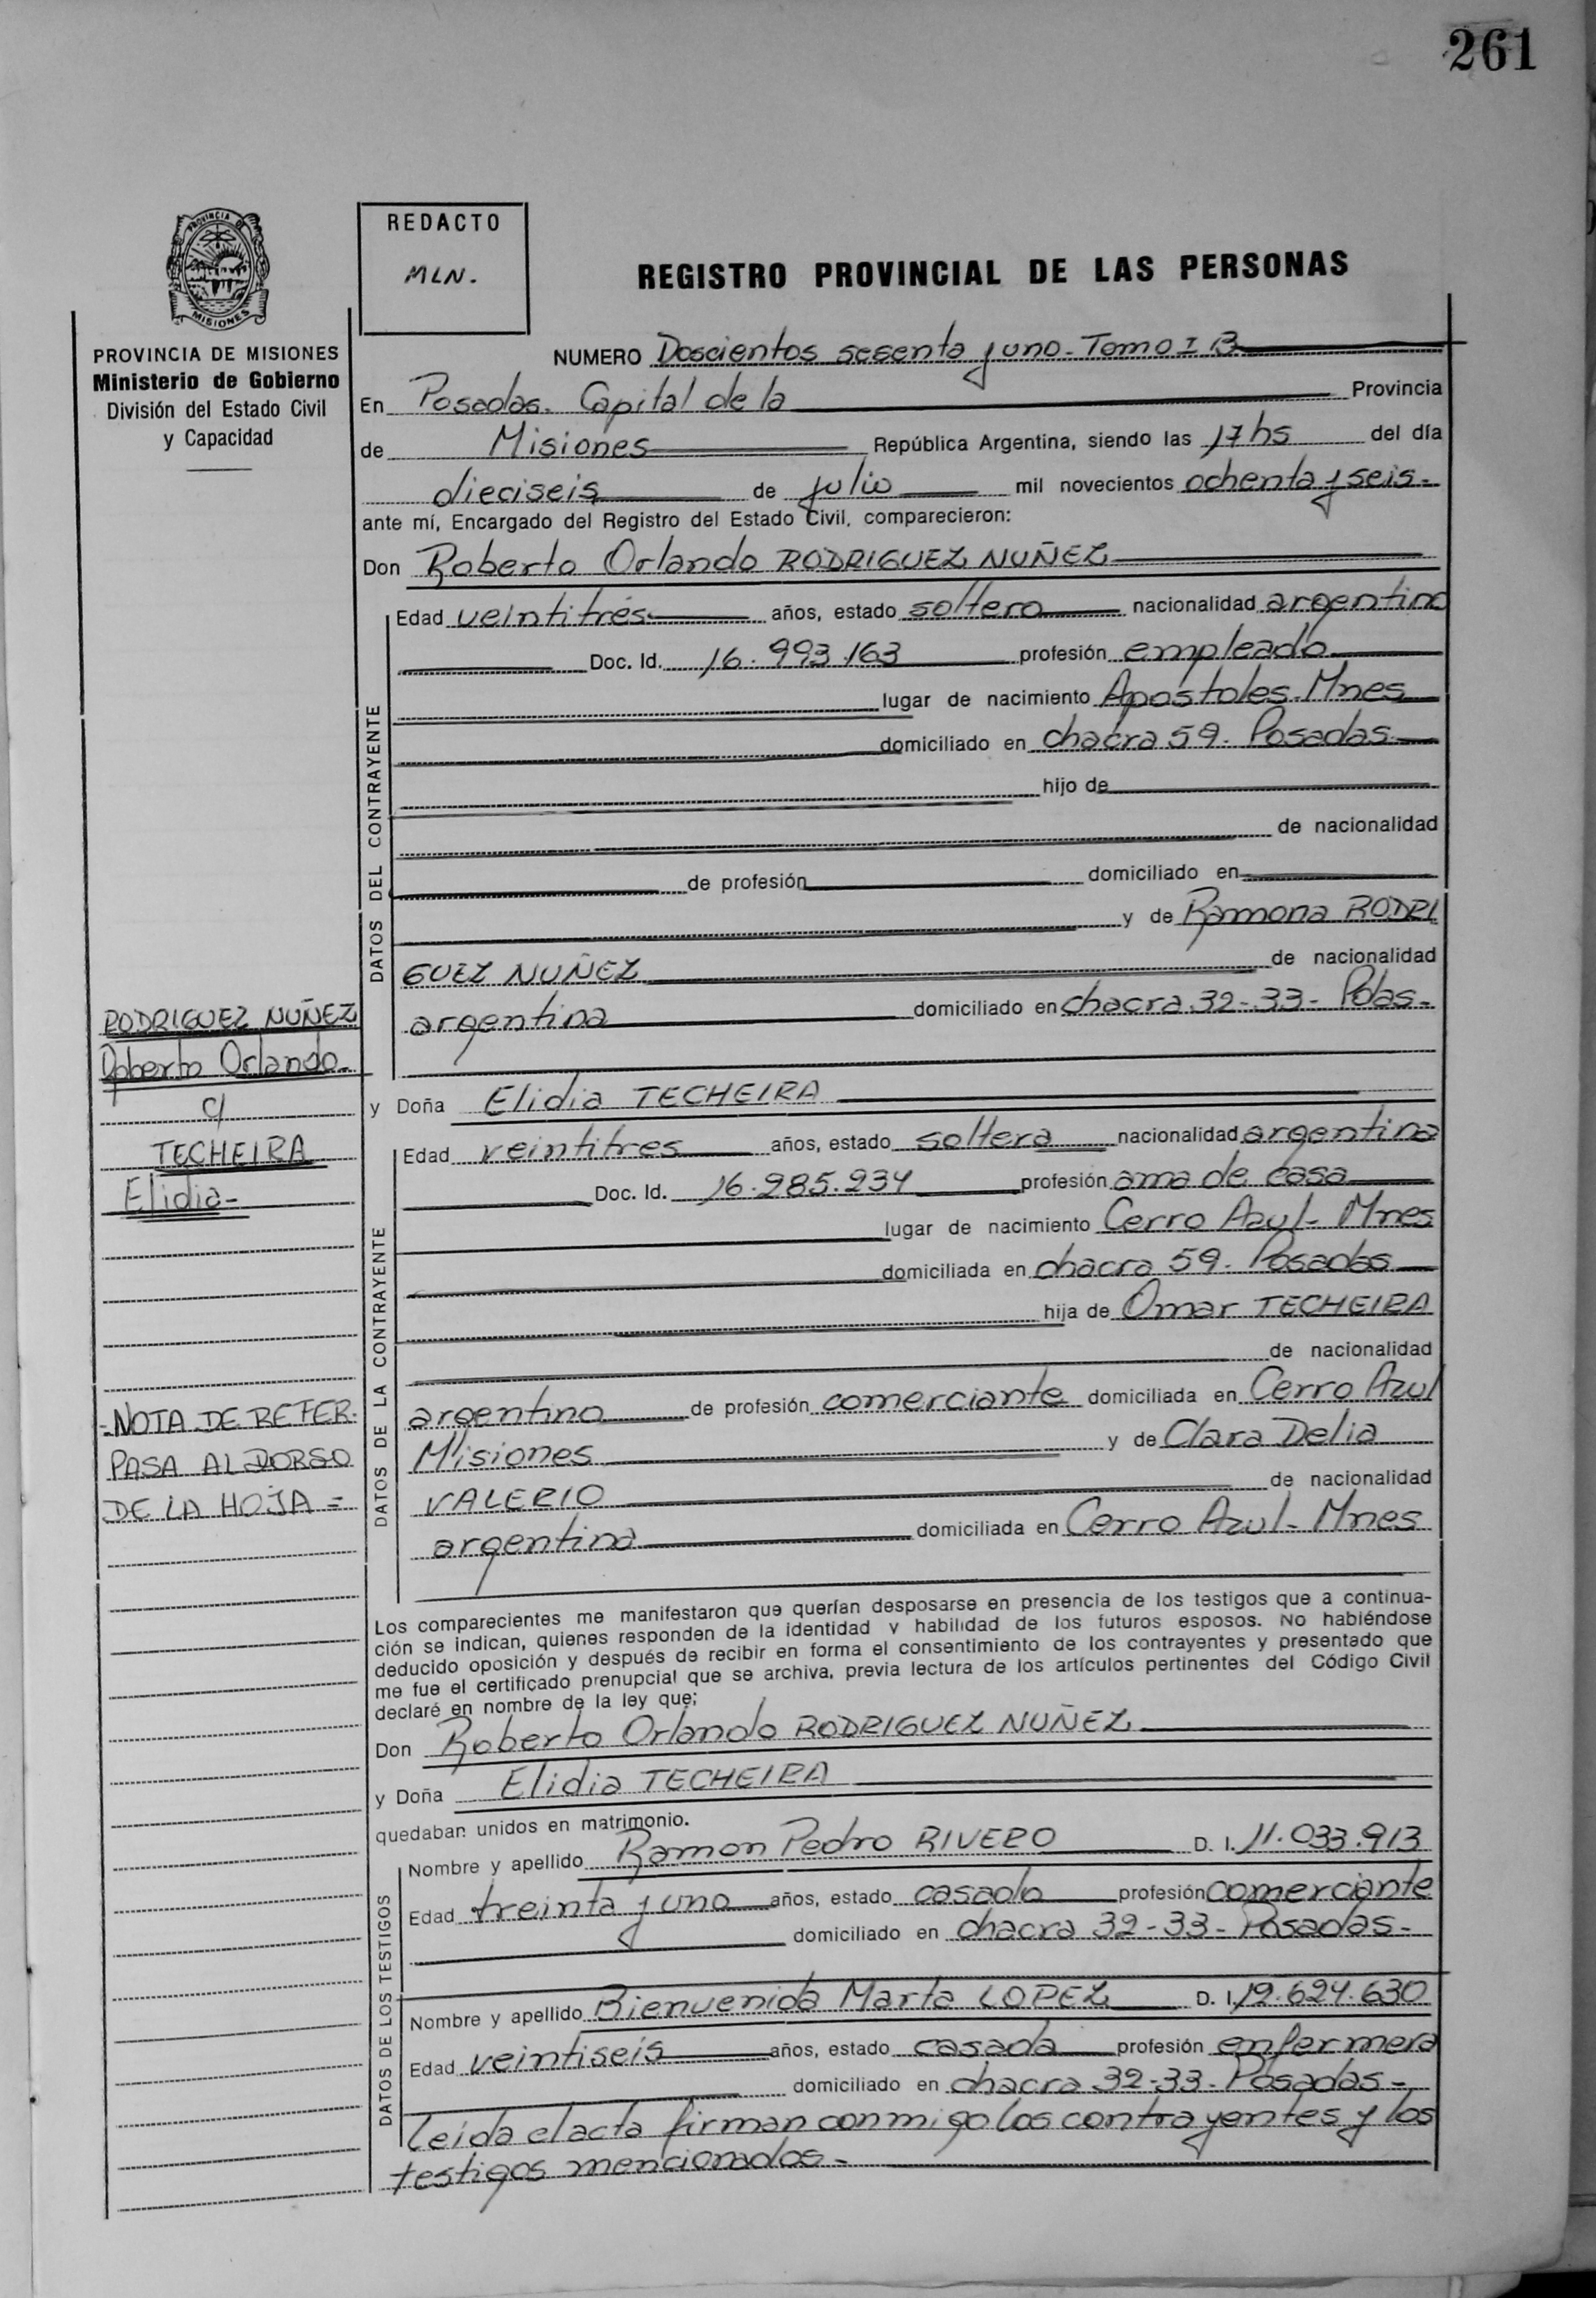 261
PROVINCIA DE
MISIONES
PROVINCIA DE MISIONES
Ministerio de Gobierno
División del Estado Civil
y Capacidad
REDACTO
MLN.
REGISTRO PROVINCIAL DE LAS PERSONAS
NUMERO Doscientos sesenta y uno - Tomo I B
En Posadas. Capital de la Provincia
de Misiones República Argentina, siendo las 17 hs del día
dieciseis de julio mil novecientos ochenta y seis-
ante mí, Encargado del Registro del Estado Civil, comparecieron:
Don Roberto Orlando RODRIGUEZ NUÑEZ
DATOS DEL CONTRAYENTE
Edad veintitrés años, estado soltero nacionalidad argentino
Doc. Id. 16.993.163 profesión empleado
lugar de nacimiento Apóstoles - Mnes
domiciliado en chacra 59. Posadas
hijo de
de nacionalidad
de profesión domiciliado en
y de Ramona RODRI
GUEZ NUÑEZ de nacionalidad
argentina domiciliado en chacra 32-33- Pdas-
RODRIGUEZ NUÑEZ
Roberto Orlando-
c/
TECHEIRA
Elidia-
y Doña Elidia TECHEIRA
DATOS DE LA CONTRAYENTE
Edad veintitres años, estado soltera nacionalidad argentina
Doc. Id. 16.985.234 profesión ama de casa
lugar de nacimiento Cerro Azul- Mnes
domiciliada en chacra 59- Posadas
hija de Omar TECHEIRA
de nacionalidad
argentino de profesión comerciante domiciliada en Cerro Azul
Misiones y de Clara Delia
VALERIO de nacionalidad
argentina domiciliada en Cerro Azul- Mnes
-NOTA DE REFER.
PASA AL DORSO
DE LA HOJA =
Los comparecientes me manifestaron que querían desposarse en presencia de los testigos que a continua-
ción se indican, quienes responden de la identidad y habilidad de los futuros esposos. No habiéndose
deducido oposición y después de recibir en forma el consentimiento de los contrayentes y presentado que
me fue el certificado prenupcial que se archiva, previa lectura de los artículos pertinentes del Código Civil
declaré en nombre de la ley que;
Don Roberto Orlando RODRIGUEZ NUÑEZ
y Doña Elidia TECHEIRA
quedaban unidos en matrimonio.
DATOS DE LOS TESTIGOS
Nombre y apellido Ramon Pedro RIVERO D. I. 11.033.913
Edad treinta y uno años, estado casado profesión comerciante
domiciliado en chacra 32-33- Posadas-
Nombre y apellido Bienvenida Marta LOPEZ D. I. 12.624.630
Edad veintiseis años, estado casada profesión enfermera
domiciliado en chacra 32-33- Posadas-
leída el acta firman conmigo los contrayentes y los
testigos mencionados-